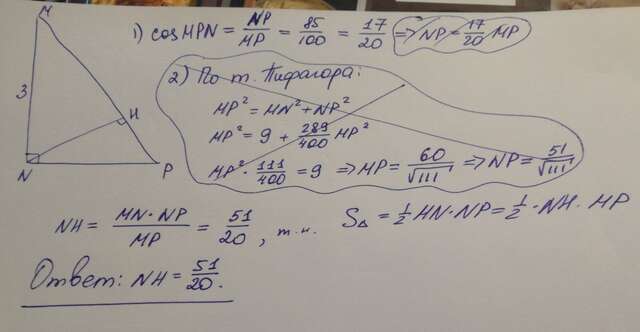 M
3
H
N
P
1) cos MPN = NP/MP = 85/100 = 17/20 ⇒ NP = 17/20 MP
2) По т. Пифагора:
MP² = MN² + NP²
MP² = 9 + 289/400 MP²
MP² · 111/400 = 9 ⇒ MP = 60/√111 ⇒ NP = 51/√111
NH = MN·NP/MP = 51/20, т.к. S△ = 1/2 MN·NP = 1/2 · NH · MP
Ответ: NH = 51/20.